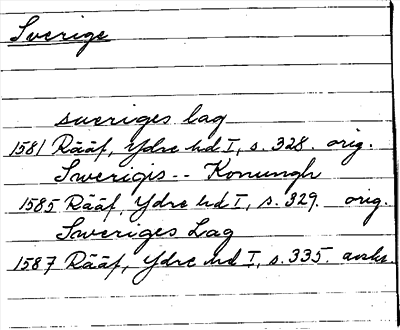 Sverige
sueriges lag
1581 Rääf, Ydre hd I, s. 328. orig.
Swerigis -- Konungh
1585 Rääf, Ydre hd I, s. 329. orig.
Sweriges Lag
1587 Rääf, Ydre hd I, s. 335. avskr.